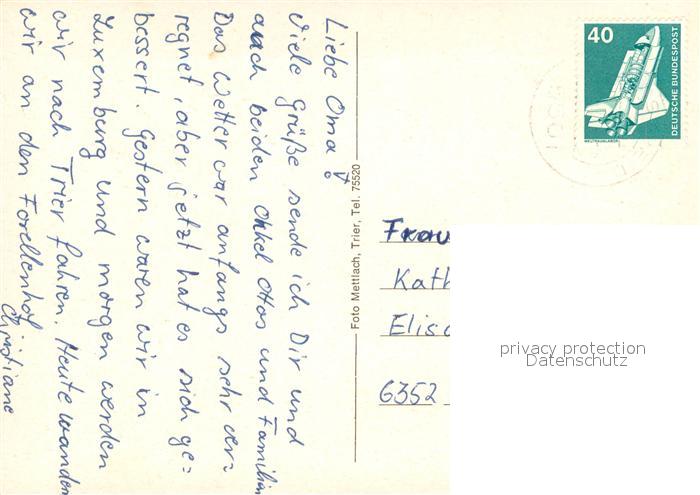 Liebe Oma!
Viele Grüße sende ich Dir und
auch beiden Onkel Ottos und Familien
Das Wetter war anfangs sehr ver=
regnet, aber jetzt hat es sich ge=
bessert. Gestern waren wir in
Luxemburg und morgen werden
wir nach Trier fahren. Heute wandern
wir an den Forellenhof
Christiane
Foto Mettlach, Trier, Tel. 75520
40
DEUTSCHE BUNDESPOST
WELTRAUMLABOR
Frau
Kath
Elisa
6352
privacy protection
Datenschutz